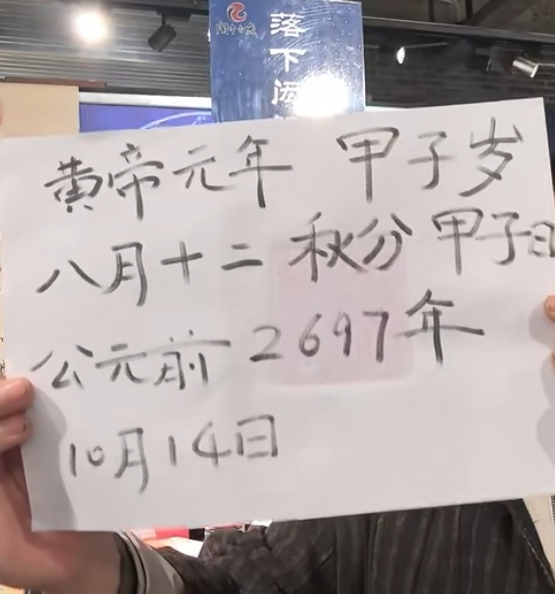 落下闳
黄帝元年 甲子岁
八月十二 秋分 甲子日
公元前2697年
10月14日